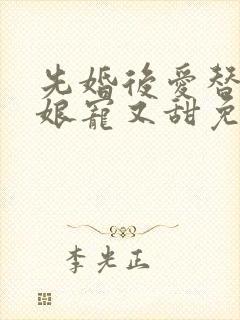 先婚後愛替
娘寵又甜免
李光正